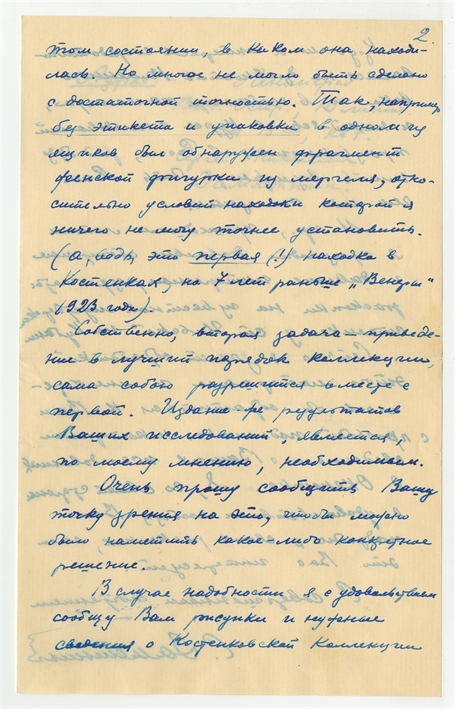 2.
том состоянии, в каком она находи-
лась. Но многое не могло быть сделано
с достаточной точностью. Так, например
без этикета и упаковки в одном из
ящиков был обнаружен фрагмент
женской фигурки из мергеля, отно-
сительно условий находки которой я
ничего не могу точнее установить.
(а, ведь, это первая (!) находка в
Костенках, на 7 лет раньше „Венеры"
1923 года).
Собственно, вторая задача – приведе-
ние в лучший порядок коллекции,
сама собою разрешится вместе с
первой. Издание же результатов
Ваших исследований, является,
по моему мнению, необходимым.
Очень прошу сообщить Вашу
точку зрения на это, чтобы можно
было наметить какое-либо конкретное
решение.
В случае надобности я с удовольствием
сообщу Вам рисунки и нужные
сведения о Костенковской коллекции